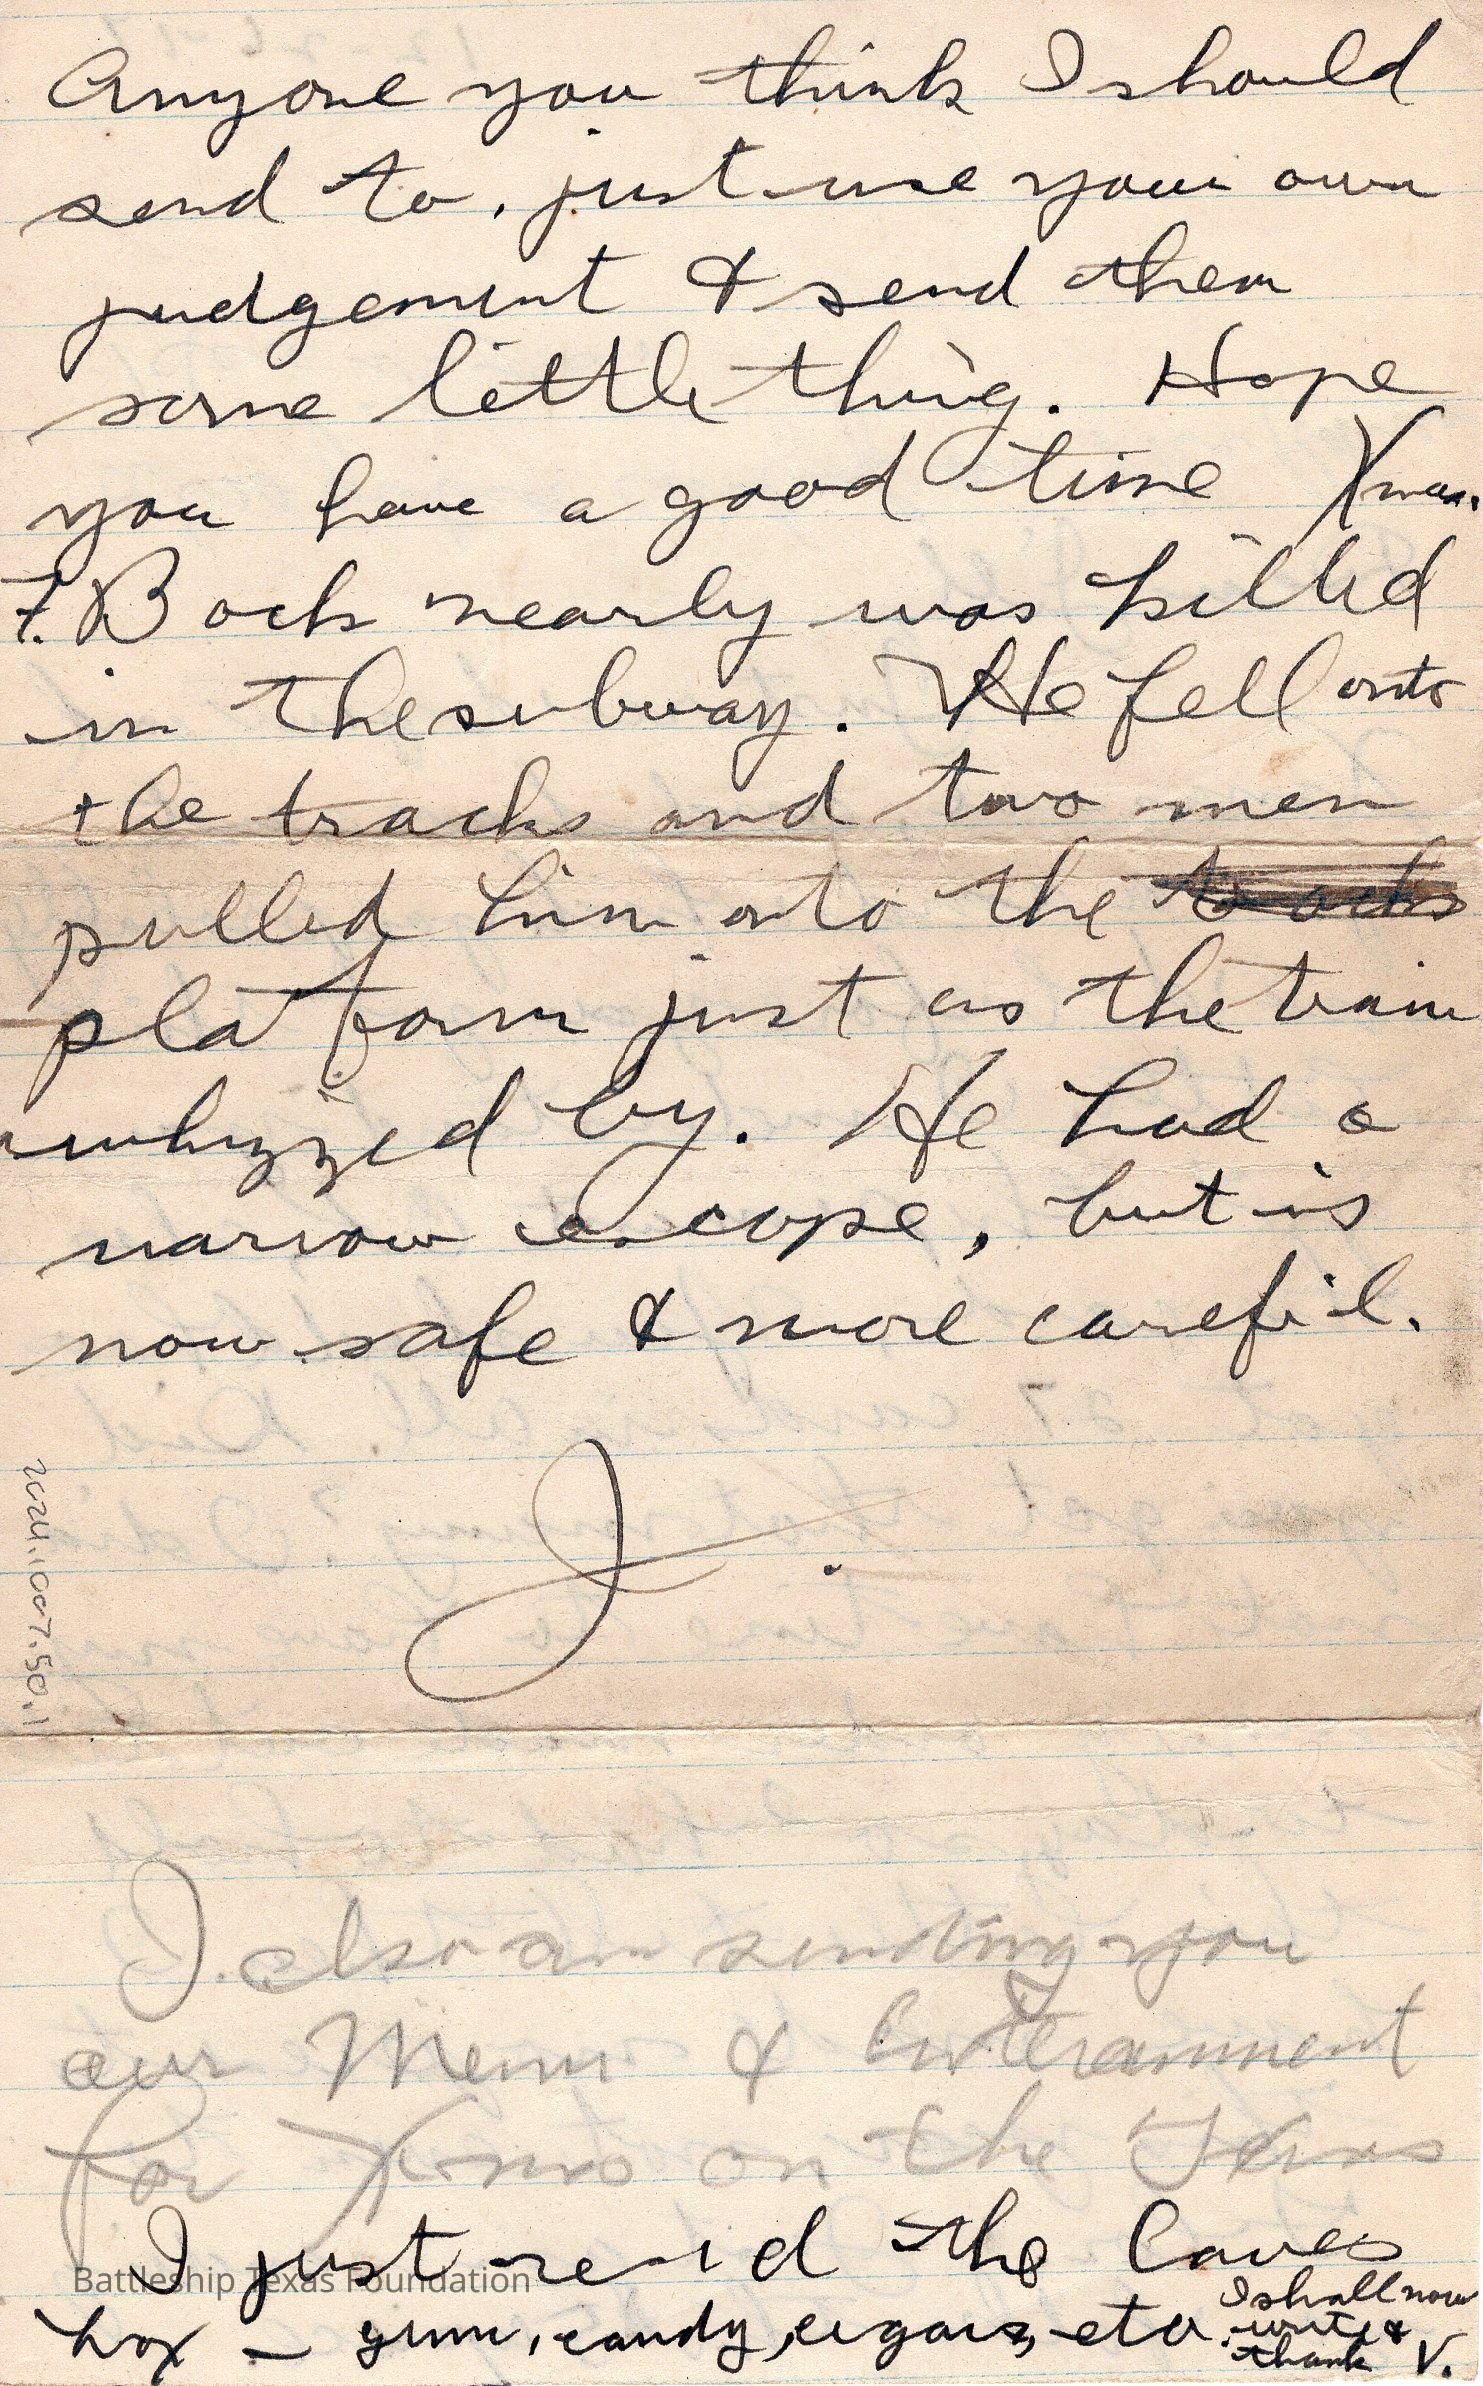 Anyone you think I should
send to, just use your own
judgement & send them
some little thing. Hope
you have a good time Xmas.
F. Bock nearly was killed
in the subway. He fell onto
the tracks and two men
pulled him onto the tracks
platform just as the train
whizzed by. He had a
narrow escape, but is
now safe & more careful.
J.
2024.1007.50.1
I also am sending you
our Menu & Entertainment
for Xmas on the Texas
I just rec'd the Laves
box – gum, candy, cigars, etc.
I shall now
write &
thank V.
Battleship Texas Foundation